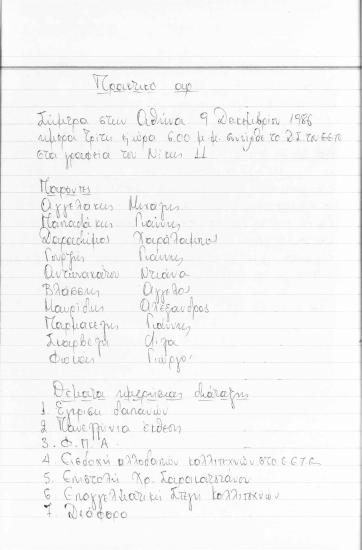 Πρακτικό αρ
Σήμερα στην Αθήνα 9 Δεκεμβρίου 1986
ημέρα Τρίτη & ώρα 6.00 μ.μ. συνήλθε το Δ.Σ του ΕΕΤΕ
στα γραφεία του Νίκης 11
Παρόντες
Αγγελάκης Μιχάλης
Παπαδάκης Γιάννης
Δαραδήμος Χαράλαμπος
Γουρζής Γιάννης
Αντωνακάτου Ντιάνα
Βλάσσης Άγγελος
Μαυρίδης Αλέξανδρος
Παρμακέλης Γιάννης
Σκαρβέλη Λίζα
Φώτιος Γιώργος
Θέματα ημερήσιας διάταξης
1. Έγκριση δαπανών
2. Πανελλήνια έκθεση
3. Φ.Π.Α.
4. Εισδοχή αλλοδαπών καλλιτεχνών στο Ε.Ε.Τ.Ε.
5. Επιστολή Χρ. Σαρακατσιάνου
6. Επαγγελματική Στέγη καλλιτεχνών
7. Διάφορα